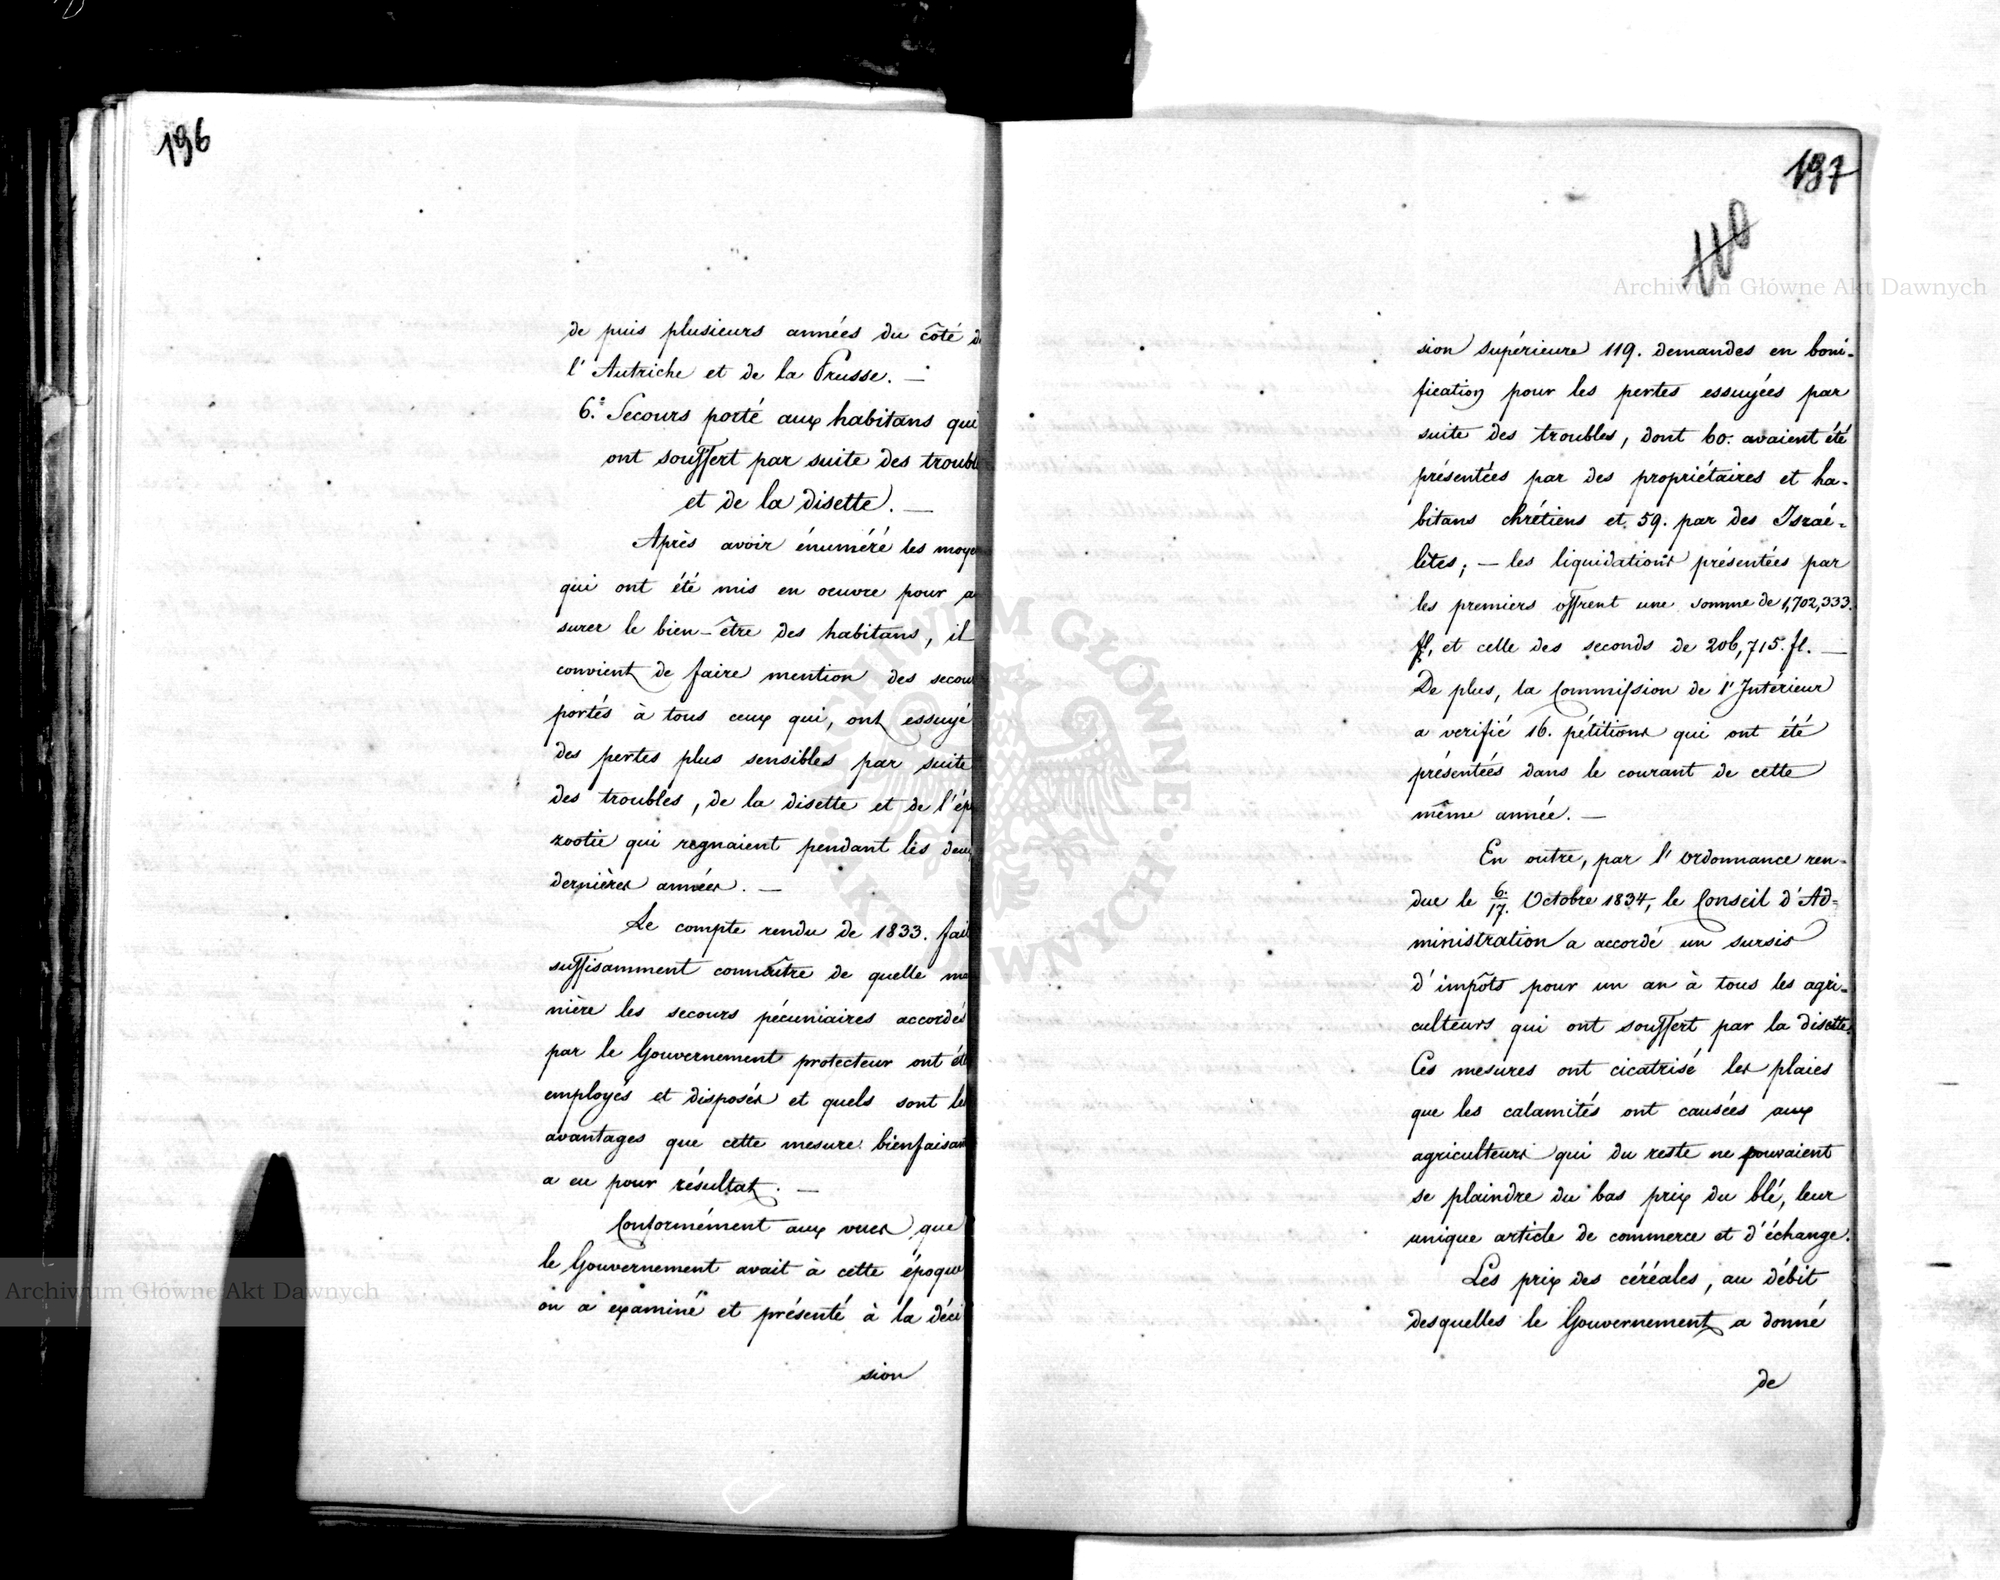 196
de puis plusieurs années du côté d
l'Autriche et de la Prusse. —
6.° Secours porté aux habitans qui
ont souffert par suite des troubl
et de la disette. —
Après avoir énuméré les moye
qui ont été mis en oeuvre pour a
surer le bien-être des habitans, il
convient de faire mention des secou
portés à tous ceux qui, ont essuyé
des pertes plus sensibles par suite
des troubles, de la disette et de l'ép
zootie qui regnaient pendant les deux
dernières années. —
Le compte rendu de 1833. fait
suffisamment connaître de quelle ma
nière les secours pécuniaires accordés
par le Gouvernement protecteur ont été
employés et disposés et quels sont les
avantages que cette mesure bienfaisan
a eu pour résultat. —
Conformément aux vues que
le Gouvernement avait à cette époque
on a examiné et présenté à la déci
sion
197
sion supérieure 119. demandes en boni-
fication pour les pertes essuyées par
suite des troubles, dont 60. avaient été
présentées par des propriétaires et ha-
bitans chrétiens et 59. par des Israé-
lites; — les liquidations présentées par
les premiers offrent une somme de 1,702,333.
fl. et celle des seconds de 206,715. fl. —
De plus, la Commission de l'Intérieur
a verifié 16. pétitions qui ont été
présentées dans le courant de cette
même année. —
En outre, par l'ordonnance ren-
due le 6./17. Octobre 1834, le Conseil d'Ad-
ministration a accordé un sursis
d'impôts pour un an à tous les agri-
culteurs qui ont souffert par la disette.
Ces mesures ont cicatrisé les plaies
que les calamités ont causées aux
agriculteurs qui du reste ne pouvaient
se plaindre du bas prix du blé, leur
unique article de commerce et d'échange.
Les prix des céréales, au débit
desquelles le Gouvernement a donné
de
Archiwum Główne Akt Dawnych
Archiwum Główne Akt Dawnych
ARCHIWUM GŁÓWNE AKT DAWNYCH